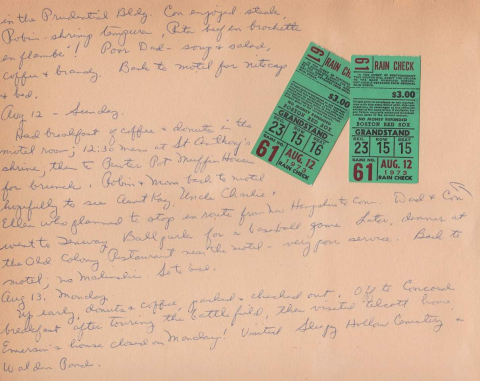 in the Prudential Bldg. Con enjoyed steak
Robin - shrimp tempura, Pete beef en brochette
en flambe'! Poor Dad - soup & salad,
coffee & brandy Back to motel for
& bed.
Aug 12 - Sunday.
Had breakfast of coffee & donuts in the
motel room; 12:30 mass at St Anthony's
shrine, then to Pewter Pot Muffin House
for brunch. Robin & Mom back to motel
hopefully to see Aunt Kay, Uncle Charlie &
Ellen who planned to stop en route from New Hampshire to Conn. Dad & Con
went to Fenway Ball park for a baseball game. Later, dinner at
the Old Colony Restaurant near the motel - very poor service. Back to
motel, no So to bed.
Aug 13. Monday
Up early, donuts & coffee, packed & checked out. Off to Concord
breakfast after touring the battlefield, then visited Alcott house,
Emerson's house closed on Monday! Visited Sleepy Hollow Cemetery &
Walden Pond.
61 RAIN CHECK
$3.00
NO MONEY REFUNDED
BOSTON RED SOX
GRANDSTAND
SEC. ROW SEAT
23 15 16
GAME NO.
61
AUG. 12
1973
RAIN CHECK
61 RAIN CHECK
$3.00
NO MONEY REFUNDED
BOSTON RED SOX
GRANDSTAND
SEC. ROW SEAT
23 15 15
GAME NO.
61
AUG. 12
1973
RAIN CHECK